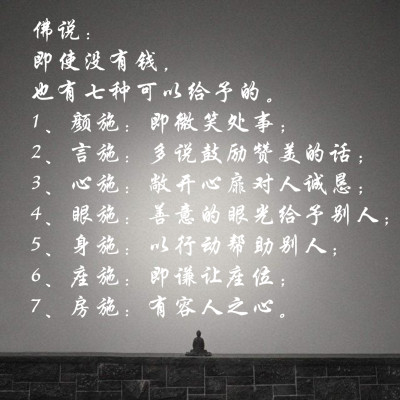 佛说：
即使没有钱，
也有七种可以给予的。
1、颜施：即微笑处事；
2、言施：多说鼓励赞美的话；
3、心施：敞开心扉对人诚恳；
4、眼施：善意的眼光给予别人；
5、身施：以行动帮助别人；
6、座施：即谦让座位；
7、房施：有容人之心。